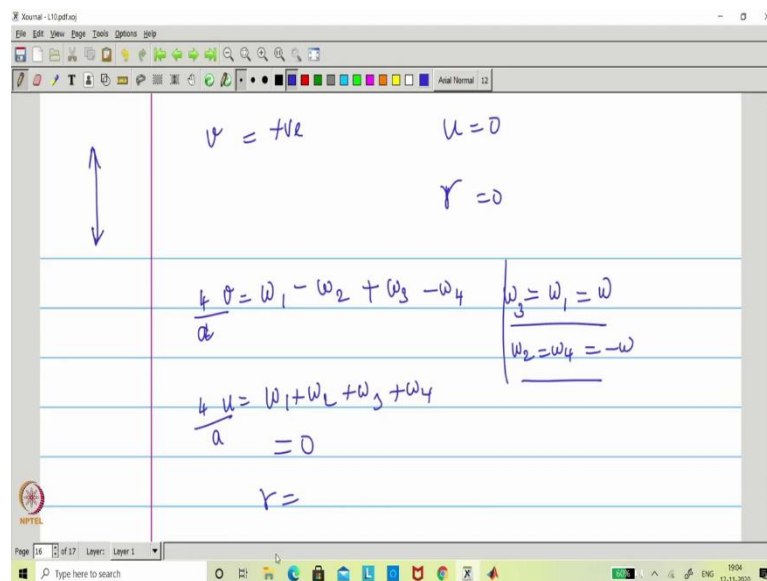 Xournal - L10.pdf.xoj
File Edit View Page Tools Options Help
T Arial Normal 12
v = +ve u = 0
r = 0
4/a v = ω1 - ω2 + ω3 - ω4 ω3 = ω1 = ω
ω2 = ω4 = -ω
4/a u = ω1 + ω2 + ω3 + ω4
= 0
r =
NPTEL
Page 16 of 17 Layer: Layer 1
Type here to search 60% ENG 19:04
12-11-2020